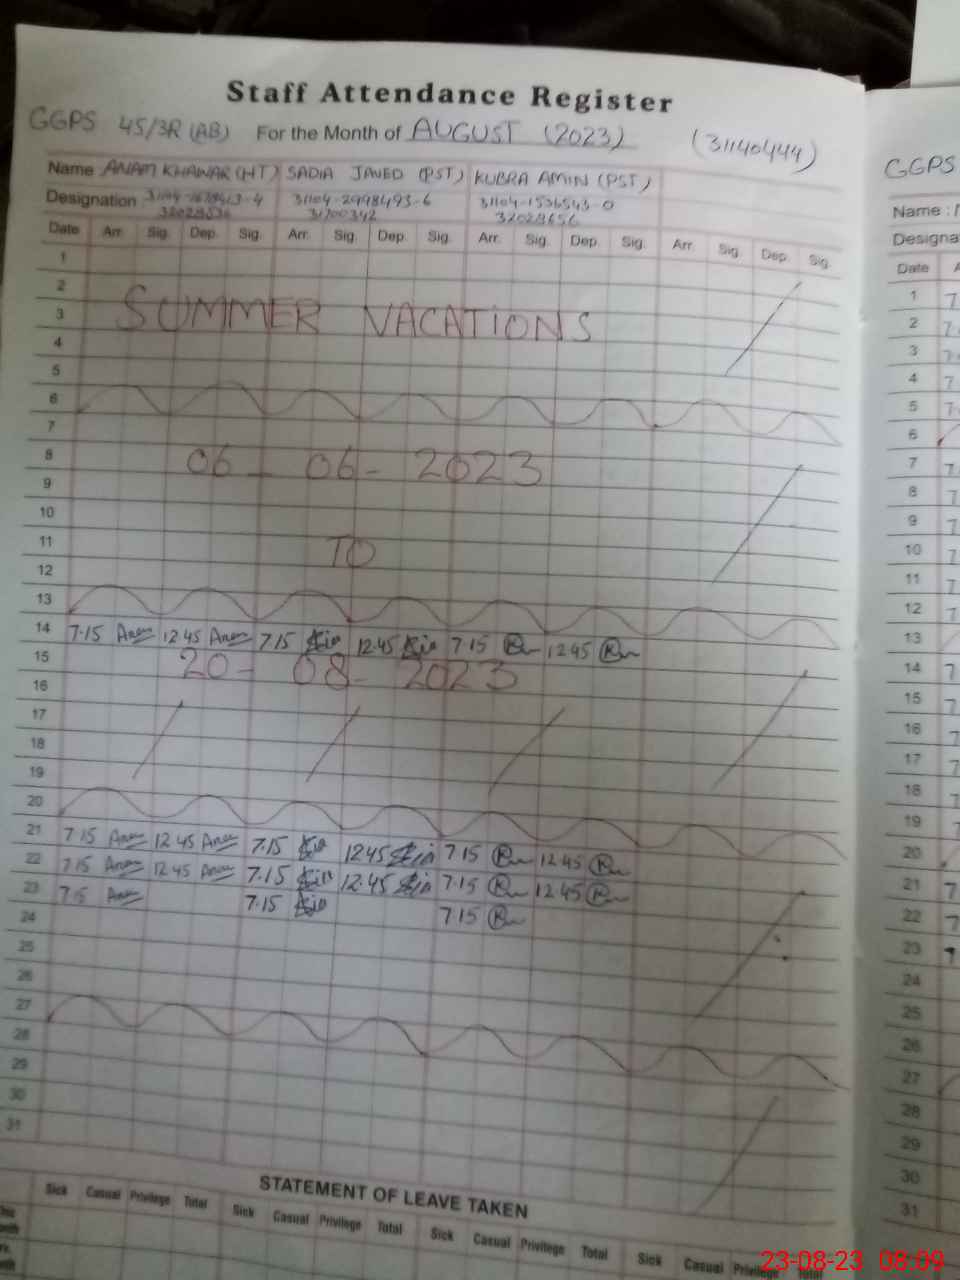 Staff Attendance Register
GGPS 45/3R (AB) For the Month of AUGUST (2023) (31140444)
Name ANAM KHAWAR (HT) SADIA JAVED (PST) KUBRA AMIN (PST)
Designation 31104-2998493-6 31104-1536543-0
31700342 32028656
Date Arr. Sig. Dep. Sig. Arr. Sig. Dep. Sig. Arr. Sig. Dep. Sig. Arr. Sig. Dep. Sig.
1
2
3 SUMMER VACATIONS
4
5
6
7
8 06 - 06 - 2023
9
10
11 TO
12
13
14 7.15 Anam 12 45 Anam 7.15 12.45 7.15 12 45
15 20 - 08 - 2023
16
17
18
19
20
21 7 15 Anam 12 45 Anam 7.15 12 45 7 15 12 45
22 7.15 Anam 12 45 Anam 7.15 12.45 7.15 12 45
23 7.15 Anam 7.15 7 15
24
25
26
27
28
29
30
31
STATEMENT OF LEAVE TAKEN
Sick Casual Privilege Total Sick Casual Privilege Total Sick Casual Privilege Total Sick Casual Privilege Total
GGPS
Name :
Designa
Date
1
2
3
4
5
6
7
8
9
10
11
12
13
14
15
16
17
18
19
20
21
22
23
24
25
26
27
28
29
30
31
23-08-23 08:09